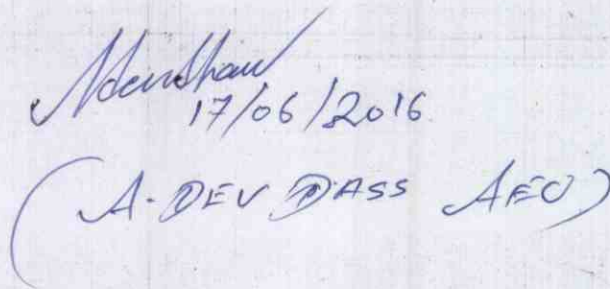 17/06/2016
(A. DEV DASS AEO)